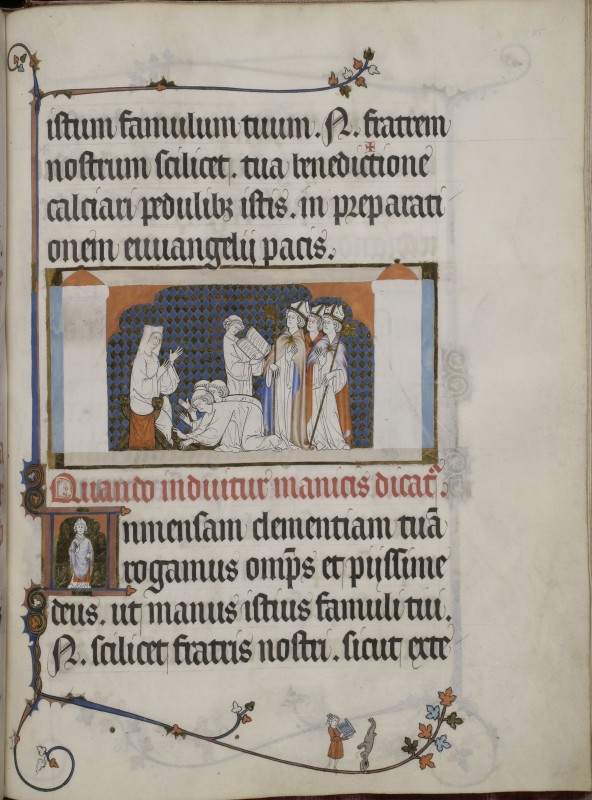 istum famulum tuum. N. fratrem
nostrum scilicet. tua benedictione
calciari pedulibꝫ istis. in preparati
onem euuangelij pacis.
Quando induitur manicis dicat᷑.
Inmensam clementiam tuā
rogamus omp̄s et pijssime
deus. ut manus istius famuli tui.
N. scilicet fratris nostri. sicut exte